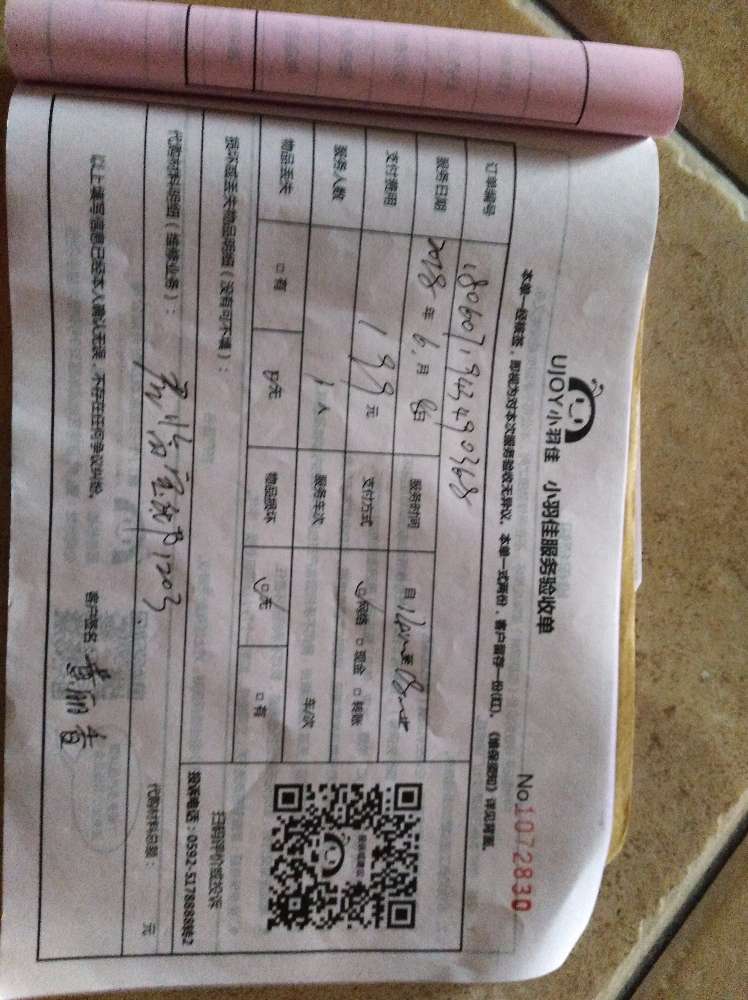 UJOY小羽佳 小羽佳服务验收单
No 1072830
本单一经签签，即视为对本次服务验收无异议。本单一式两份，客户留存一份(红)。《维保须知》详见背面。
订单编号
服务日期 2018 年 6 月 日 服务时间 自 至
支付费用 199 元 支付方式 网络 □ 现金 □ 转账
服务人数 1 人 服务车次 车次
物品丢失 □ 有 无 物品损坏 无 □ 有
扫码评价或投诉
投诉电话：0592-5178888转2
损坏或丢失物品明细（没有可不填）：
代购材料明细（维修业务）：
代购材料总额： 元
1203
以上填写信息已经本人确认无误，不存在任何争议纠纷。
客户签名 黄丽香